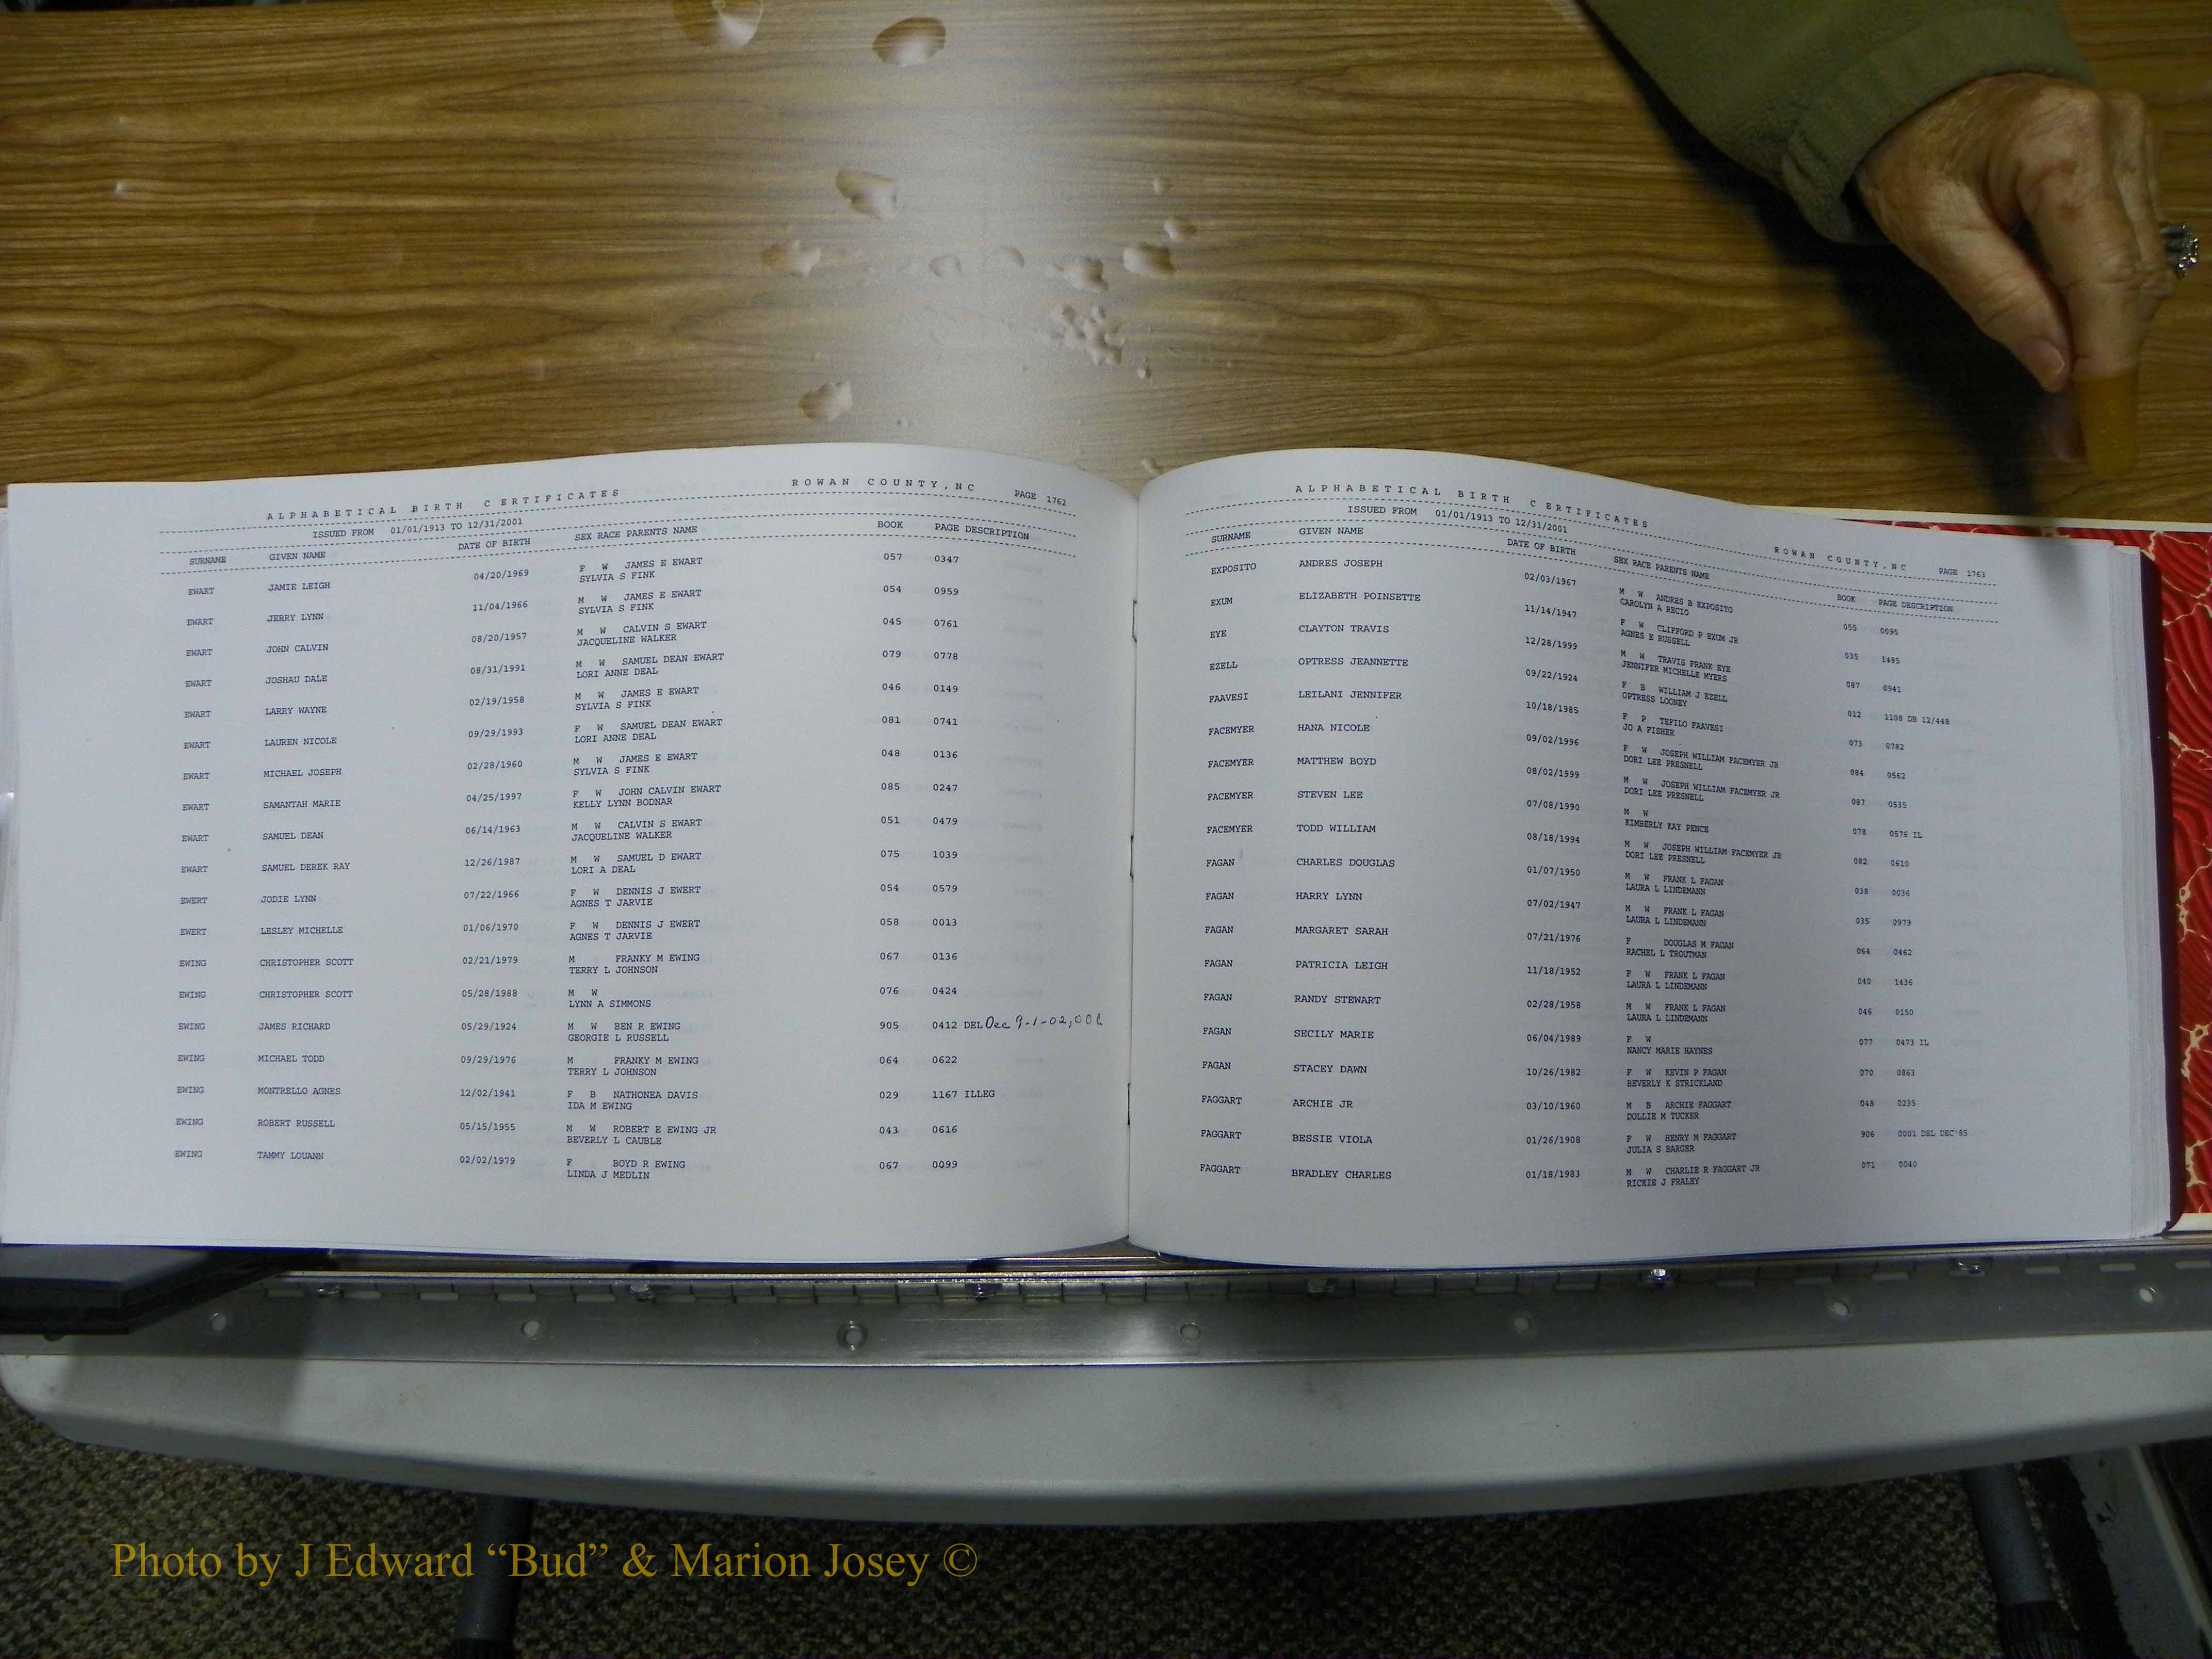 ALPHABETICAL BIRTH CERTIFICATES ROWAN COUNTY, NC PAGE 1762
ISSUED FROM 01/01/1913 TO 12/31/2001
SURNAME GIVEN NAME DATE OF BIRTH SEX RACE PARENTS NAME BOOK PAGE DESCRIPTION
EWART JAMIE LEIGH 04/20/1969 F W JAMES E EWART 057 0347
SYLVIA S FINK
EWART JERRY LYNN 11/04/1966 M W JAMES E EWART 054 0959
SYLVIA S FINK
EWART JOHN CALVIN 08/20/1957 M W CALVIN S EWART 045 0761
JACQUELINE WALKER
EWART JOSHAU DALE 08/31/1991 M W SAMUEL DEAN EWART 079 0778
LORI ANNE DEAL
EWART LARRY WAYNE 02/19/1958 M W JAMES E EWART 046 0149
SYLVIA S FINK
EWART LAUREN NICOLE 09/29/1993 F W SAMUEL DEAN EWART 081 0741
LORI ANNE DEAL
EWART MICHAEL JOSEPH 02/28/1960 M W JAMES E EWART 048 0136
SYLVIA S FINK
EWART SAMANTAH MARIE 04/25/1997 F W JOHN CALVIN EWART 085 0247
KELLY LYNN BODNAR
EWART SAMUEL DEAN 06/14/1963 M W CALVIN S EWART 051 0479
JACQUELINE WALKER
EWART SAMUEL DEREK RAY 12/26/1987 M W SAMUEL D EWART 075 1039
LORI A DEAL
EWERT JODIE LYNN 07/22/1966 F W DENNIS J EWERT 054 0579
AGNES T JARVIE
EWERT LESLEY MICHELLE 01/06/1970 F W DENNIS J EWERT 058 0013
AGNES T JARVIE
EWING CHRISTOPHER SCOTT 02/21/1979 M FRANKY M EWING 067 0136
TERRY L JOHNSON
EWING CHRISTOPHER SCOTT 05/28/1988 M W 076 0424
LYNN A SIMMONS
EWING JAMES RICHARD 05/29/1924 M W BEN R EWING 905 0412 DEL Dec 9-1-02,
GEORGIE L RUSSELL
EWING MICHAEL TODD 09/29/1976 M FRANKY M EWING 064 0622
TERRY L JOHNSON
EWING MONTRELLO AGNES 12/02/1941 F B NATHONEA DAVIS 029 1167 ILLEG
IDA M EWING
EWING ROBERT RUSSELL 05/15/1955 M W ROBERT E EWING JR 043 0616
BEVERLY L CAUBLE
EWING TAMMY LOUANN 02/02/1979 F BOYD R EWING 067 0099
LINDA J MEDLIN
ALPHABETICAL BIRTH CERTIFICATES ROWAN COUNTY, NC PAGE 1763
ISSUED FROM 01/01/1913 TO 12/31/2001
SURNAME GIVEN NAME DATE OF BIRTH SEX RACE PARENTS NAME BOOK PAGE DESCRIPTION
EXPOSITO ANDRES JOSEPH 02/03/1967 M W ANDRES B EXPOSITO 055 0095
CAROLYN A RECIO
EXUM ELIZABETH POINSETTE 11/14/1947 F W CLIFFORD P EXUM JR 035 1485
AGNES E RUSSELL
EYE CLAYTON TRAVIS 12/28/1999 M W TRAVIS FRANK EYE 087 0941
JENNIFER MICHELLE MYERS
EZELL OPTRESS JEANNETTE 09/22/1924 F B WILLIAM J EZELL 012 1108 DB 12/448
OPTRESS LOONEY
FAAVESI LEILANI JENNIFER 10/18/1985 F P TEFILO FAAVESI 073 0782
JO A FISHER
FACEMYER HANA NICOLE 09/02/1996 F W JOSEPH WILLIAM FACEMYER JR 084 0562
DORI LEE PRESNELL
FACEMYER MATTHEW BOYD 08/02/1999 M W JOSEPH WILLIAM FACEMYER JR 087 0535
DORI LEE PRESNELL
FACEMYER STEVEN LEE 07/08/1990 M W 078 0576 IL
KIMBERLY KAY PENCE
FACEMYER TODD WILLIAM 08/18/1994 M W JOSEPH WILLIAM FACEMYER JR 082 0610
DORI LEE PRESNELL
FAGAN CHARLES DOUGLAS 01/07/1950 M W FRANK L FAGAN 038 0036
LAURA L LINDEMANN
FAGAN HARRY LYNN 07/02/1947 M W FRANK L FAGAN 035 0979
LAURA L LINDEMANN
FAGAN MARGARET SARAH 07/21/1976 F DOUGLAS M FAGAN 064 0462
RACHEL L TROUTMAN
FAGAN PATRICIA LEIGH 11/18/1952 F W FRANK L FAGAN 040 1436
LAURA L LINDEMANN
FAGAN RANDY STEWART 02/28/1958 M W FRANK L FAGAN 046 0150
LAURA L LINDEMANN
FAGAN SECILY MARIE 06/04/1989 F W 077 0473 IL
NANCY MARIE HAYNES
FAGAN STACEY DAWN 10/26/1982 F W KEVIN P FAGAN 070 0863
BEVERLY K STRICKLAND
FAGGART ARCHIE JR 03/10/1960 M B ARCHIE FAGGART 048 0235
DOLLIE M TUCKER
FAGGART BESSIE VIOLA 01/26/1908 F W HENRY M FAGGART 906 0001 DEL DEC'85
JULIA S BARGER
FAGGART BRADLEY CHARLES 01/18/1983 M W CHARLIE R FAGGART JR 071 0040
RICKIE J FRALEY
Photo by J Edward “Bud” & Marion Josey ©